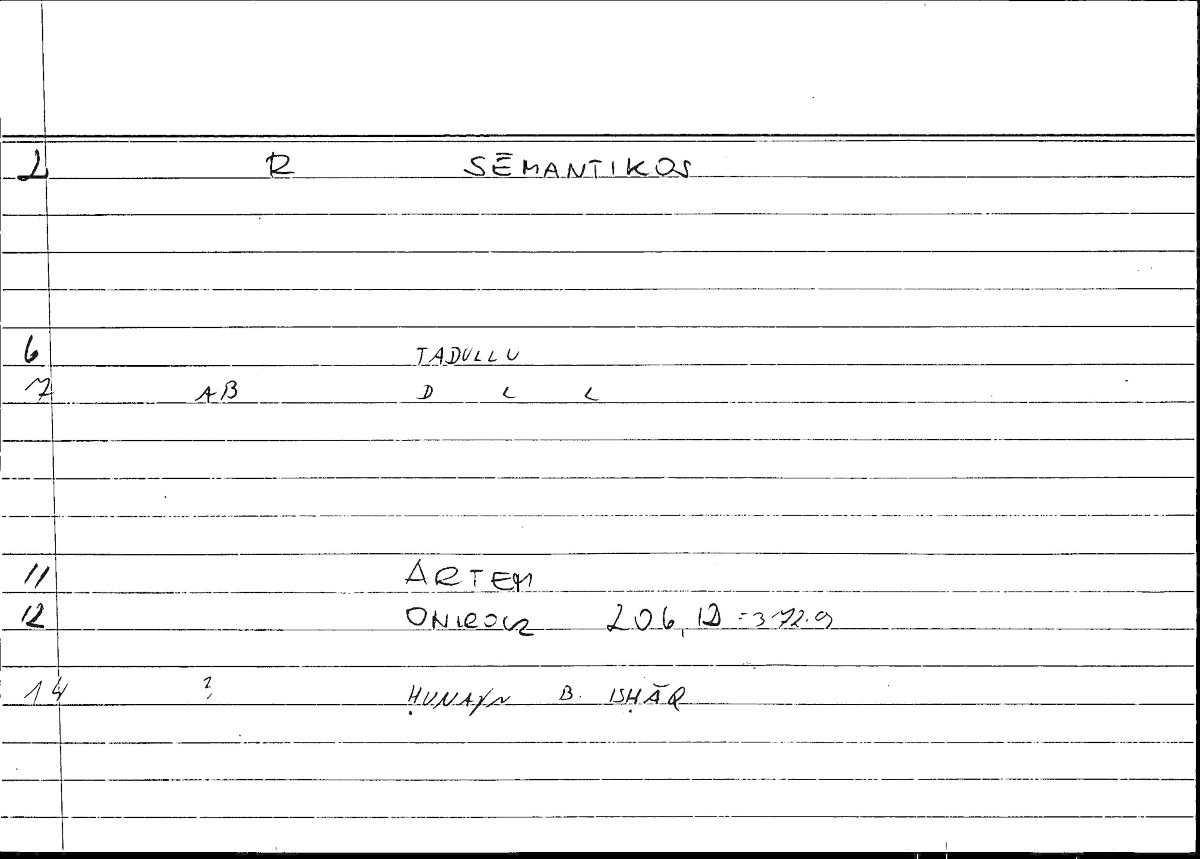 2 R SĒMANTIKOS
6 TADULLU
7 AB D L L
11 ARTEM
12 ONIROCR 206, 12 = 372.9
14 ? ḤUNAYN B. ISḤĀQ